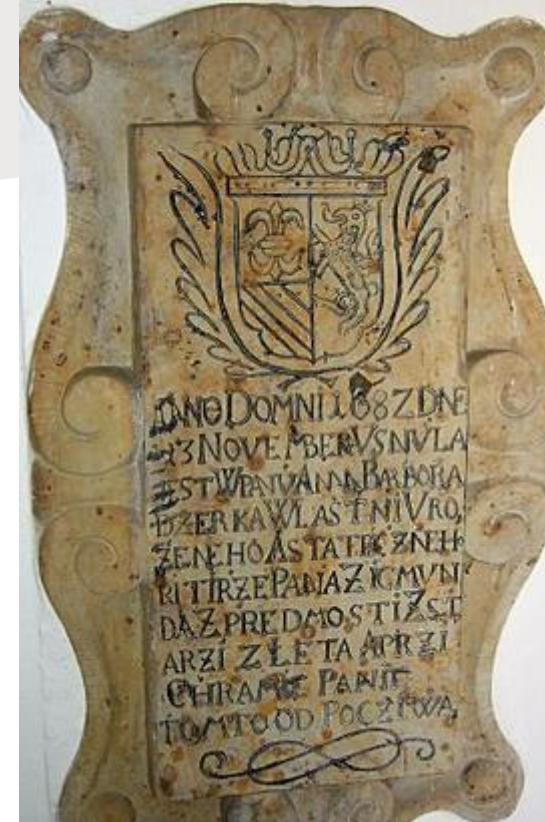 ANO DOMNI 1682 DNE
13 NOVEMBER VSNVLA
EST W PANV ANNA BARBORA
DZERKA WLASTNI VRO,
ZENEHO A STATECZNEHO
RITIRZE PANA ZIGMVN
DA Z PREDMOSTI Z ST
ARZI Z LETA A PRZI
CHRAMIE PANIE
TOMTO OD POCZIWA,